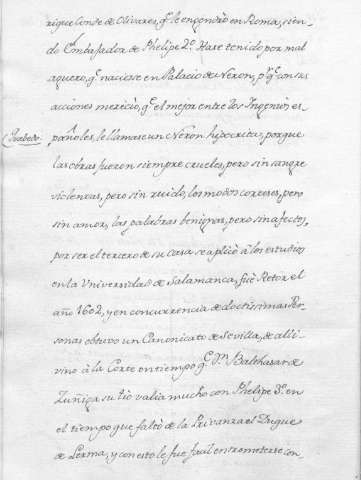 rique Conde de Olivares, q.e le engendró en Roma, sien-
do Embaxador de Phelipe 2.o Hase tenido por mal
aguero, q.e naciese en Palacio de Neron, p.r q.e con sus
acciones mereció, q.e el mejor entre los Ingenios es-
pañoles, le llamase un Neron hipocrita, porque
las obras fueron siempre crueles, pero sin sangre
violentas, pero sin ruido, los modos corteses, pero
sin amor, las palabras benignas, pero sin afectos,
por ser el tercero de su casa se aplicò à los estudios
en la Universidad de Salamanca, fue Retor el
año 1602, y en concurrencia de doctissimas Per-
sonas obtuvo un Canonicato de Sevilla, de alli
vino à la Corte en tiempo q.e D.n Balthasar de
Zuñiga su tio valia mucho con Phelipe 3.o en
el tiempo que faltò de la Privanza el Duque
de Lerma, y con esto le fue facil entrometerse con